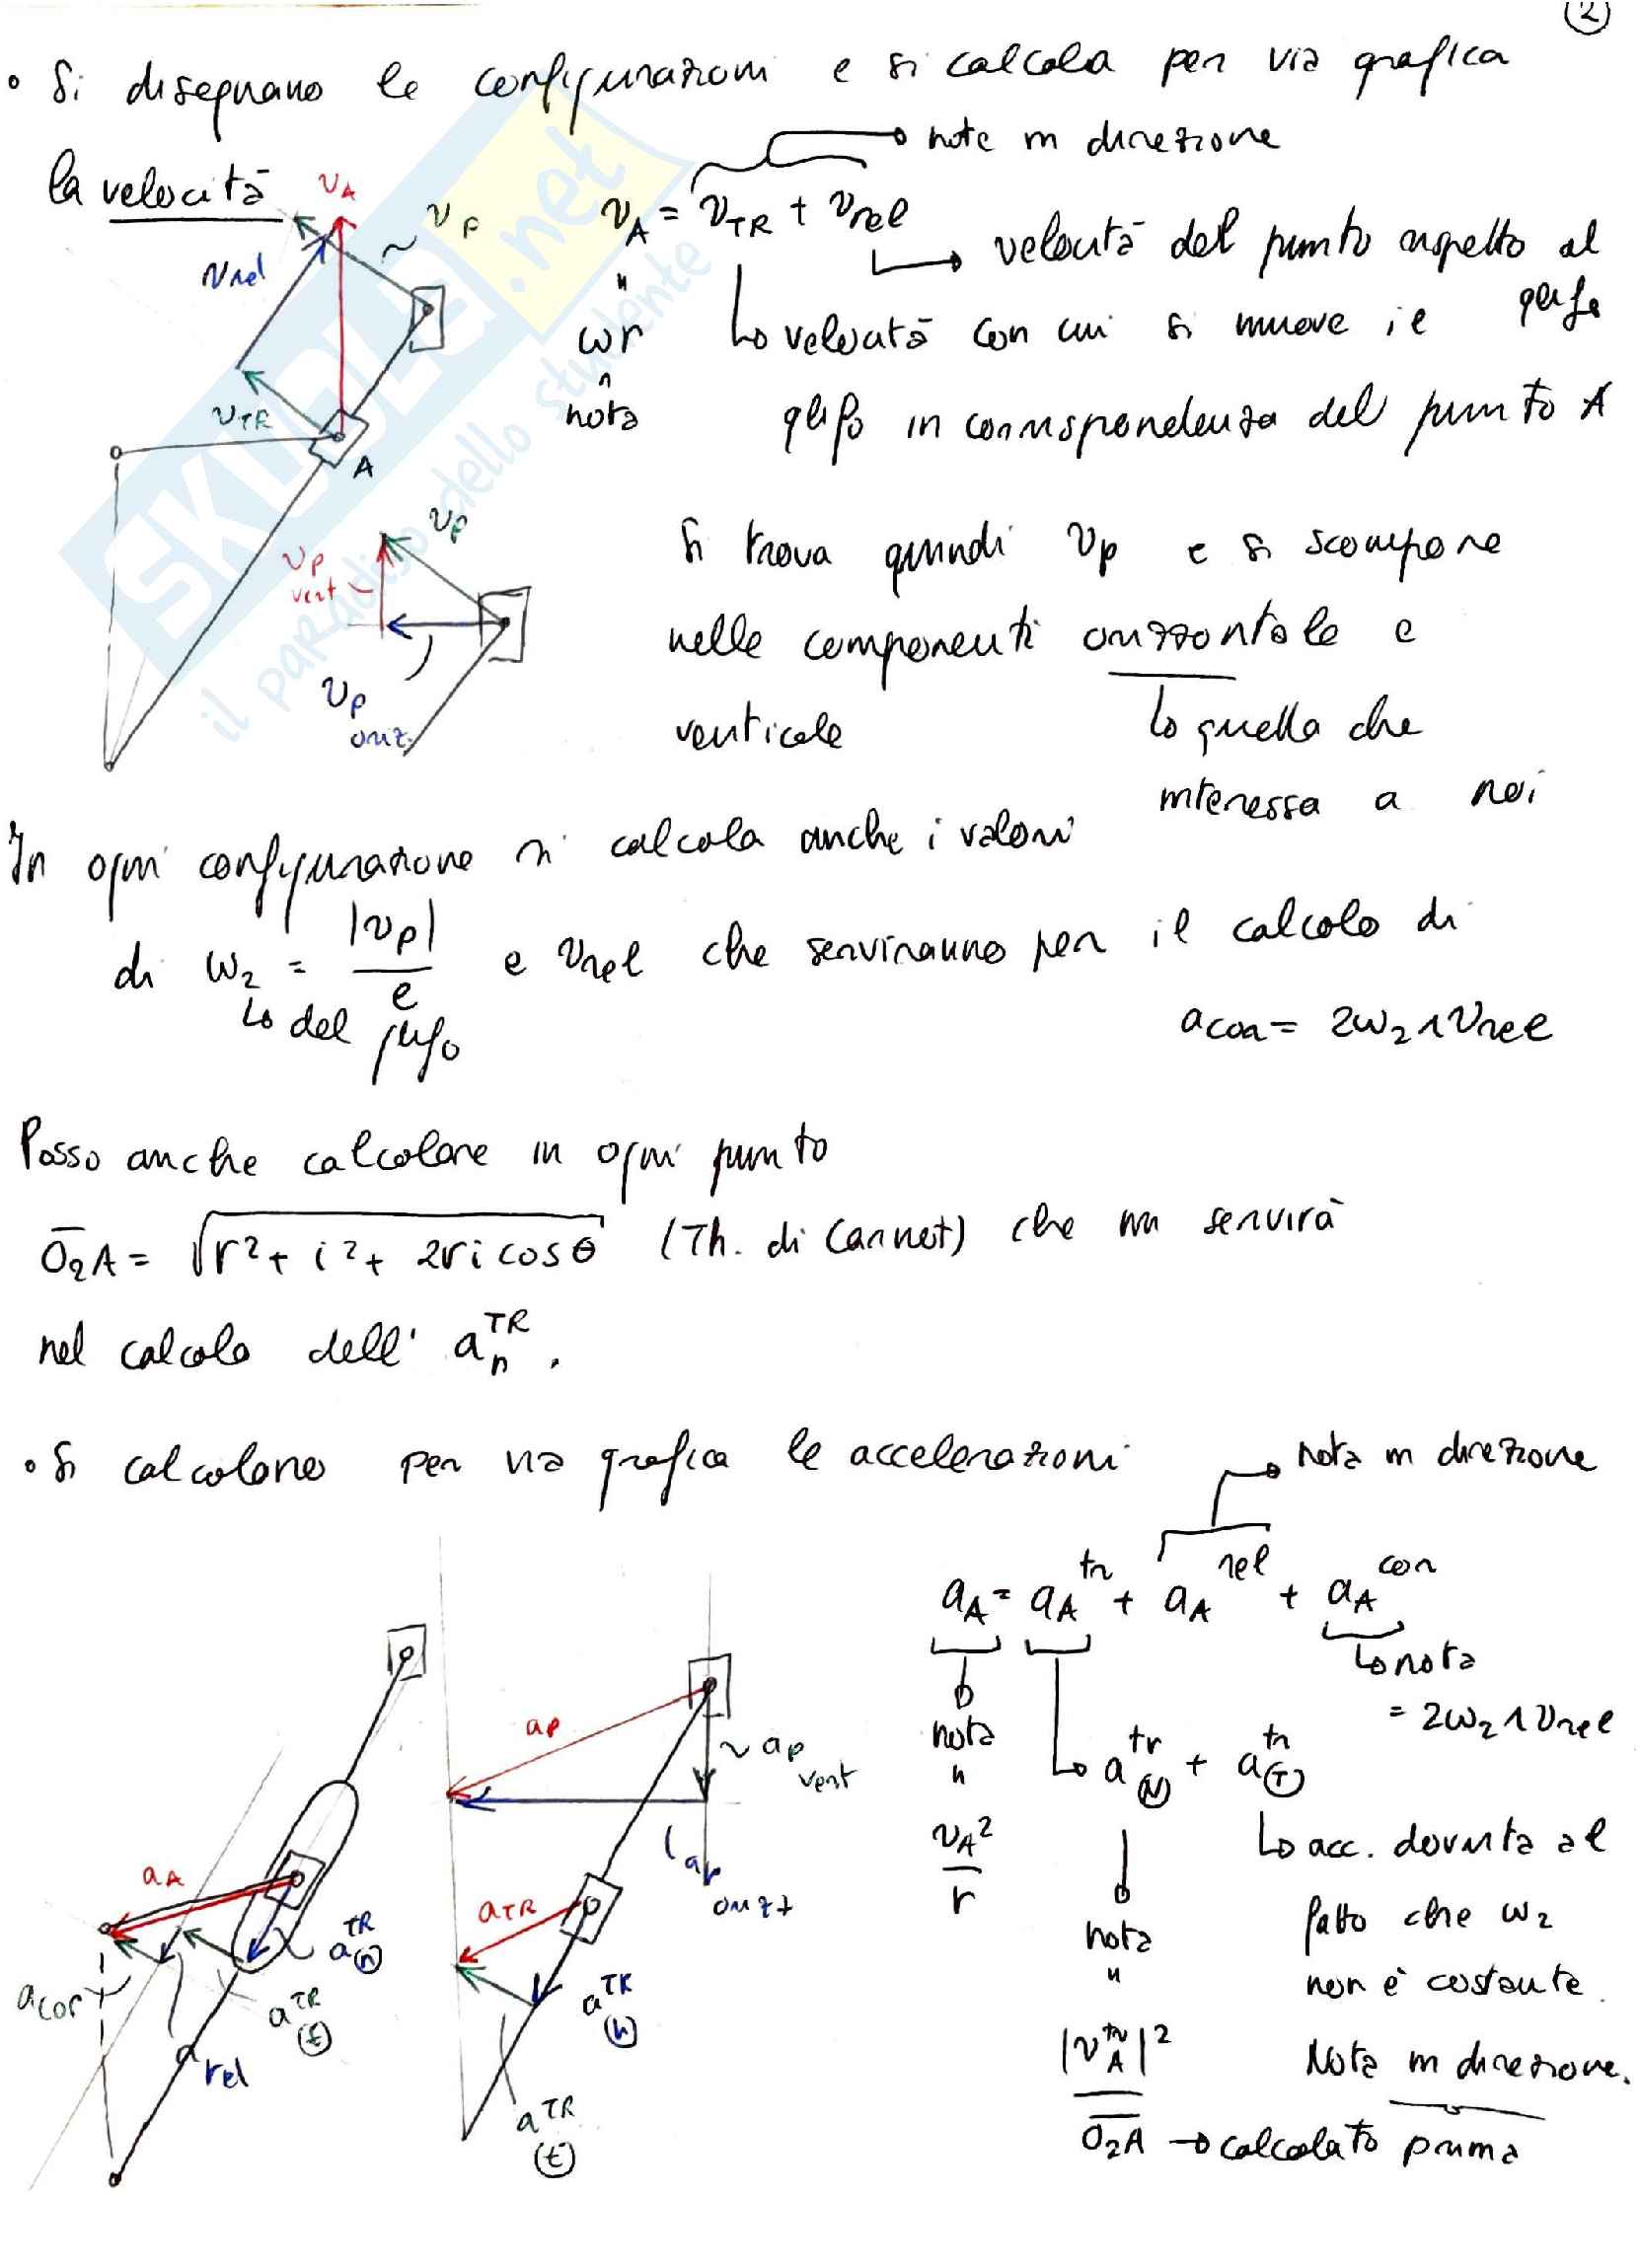 2
• Si disegnano le configurazioni e si calcola per via grafica
la velocità
note in direzione
v_A = v_TR + v_rel
velocità del punto rispetto al glifo
"
ωr
nota
velocità con cui si muove il
glifo in corrispondenza del punto A
v_A
v_P
v_rel
v_TR
A
v_P
v_P vert
v_P orizz.
Si trova quindi v_P e si scompone
nelle componenti orizzontale e
verticale
quella che
interessa a noi
In ogni configurazione si calcola anche i valori
di ω_2 = |v_P| / e e v_rel che serviranno per il calcolo di
del glifo
a_cor = 2ω_2 ∧ v_rel
Posso anche calcolare in ogni punto
O_2A = √(r² + i² + 2ri cosθ) (Th. di Carnot) che mi servirà
nel calcolo dell' a_n^TR.
• Si calcolano per via grafica le accelerazioni
nota in direzione
a_A = a_A^tr + a_A^rel + a_A^cor
nota
= 2ω_2 ∧ v_rel
nota
"
v_A² / r
a_(N)^tr + a_(T)^tr
nota
"
|v_A^tr|² / O_2A → calcolato prima
acc. dovuta al
fatto che ω_2
non è costante.
Nota in direzione.
a_A
a_cor
a_(n)^TR
a_(t)^TR
a_rel
a_P
a_P vert
a_P orizz
a_TR
a_(n)^TR
a_(t)^TR
SKUOLA.net
il paradiso dello studente